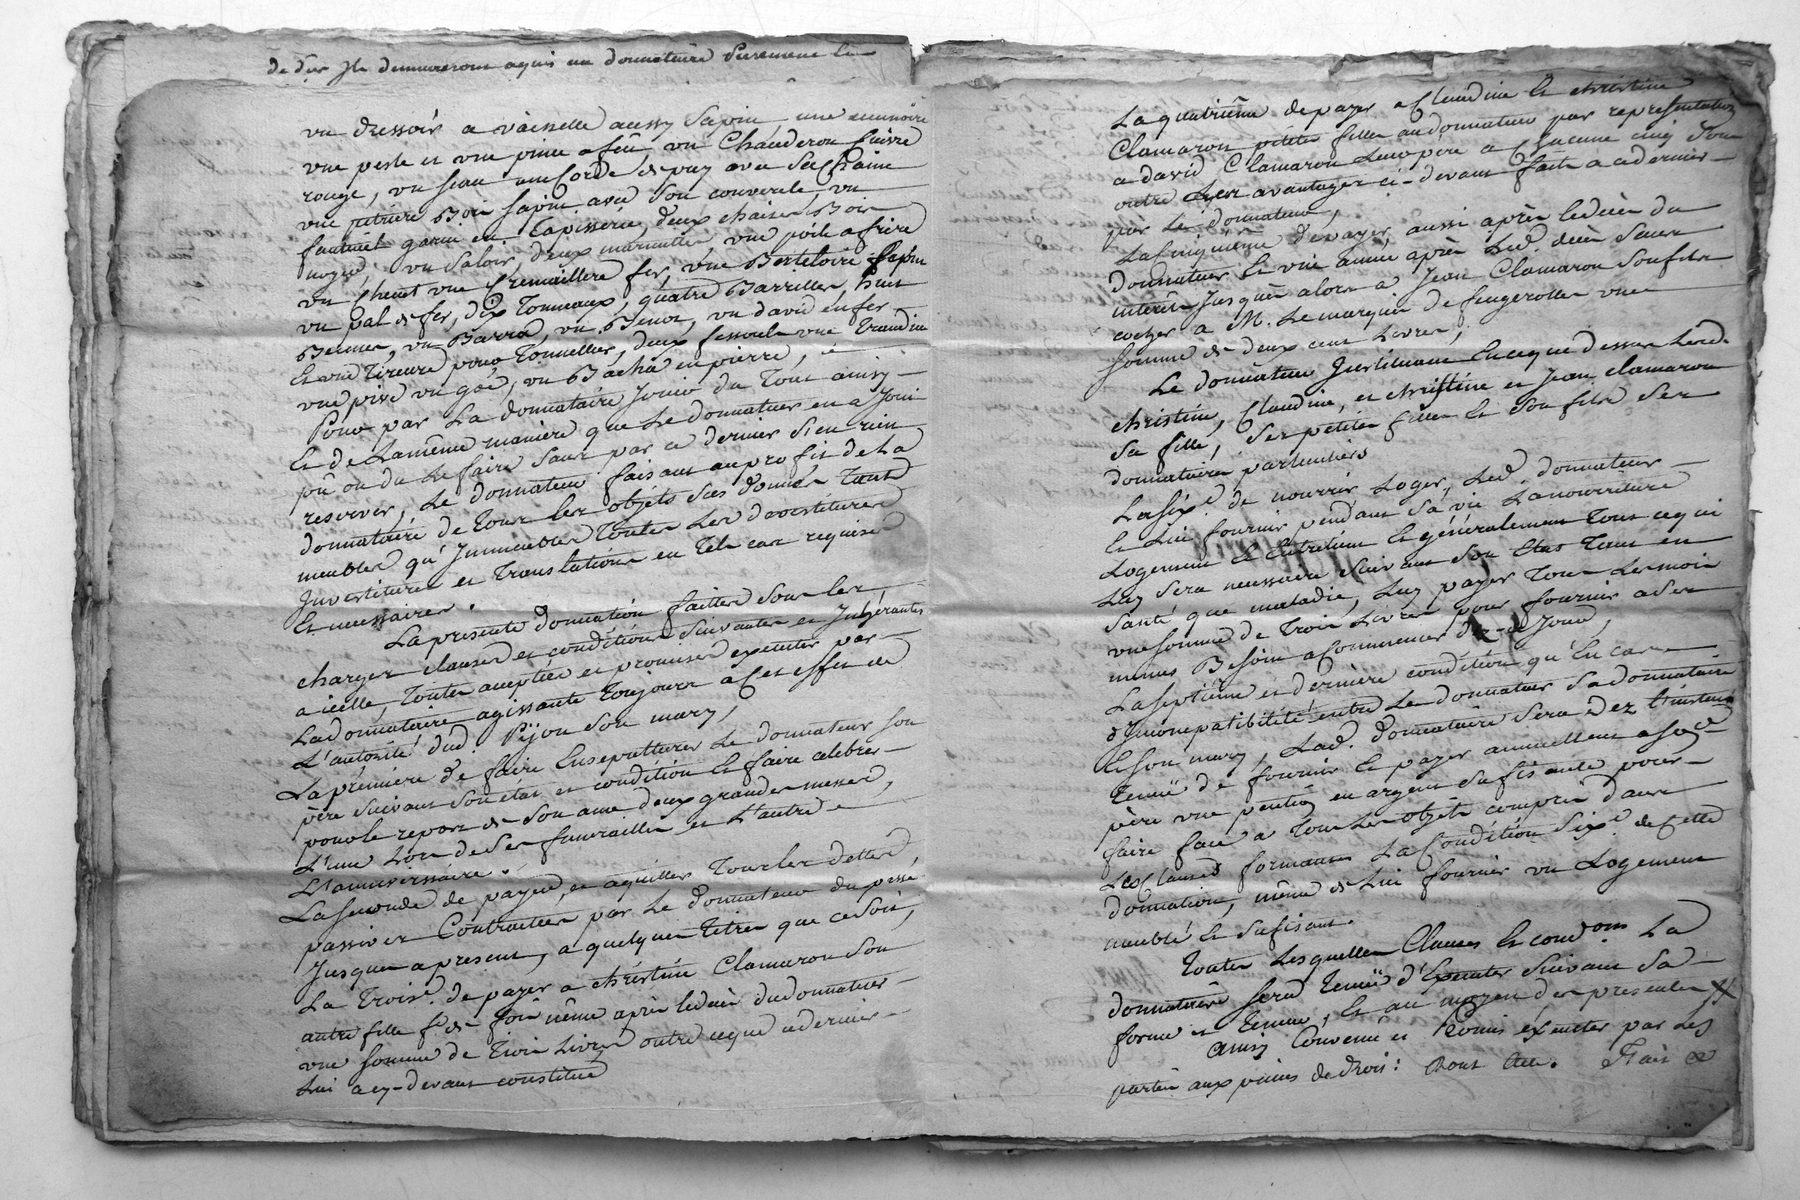 de d'un Ils demeureront aquis au donnataire Purement et
un dressoir a vaisselle aussy sapin une
une perle et une pince a feu un Chauderon cuivre
rouge, un seau une corde de puy avec sa chaine
une patriere Bois sapin avec son couvercle un
fauteuil garni en Tapisserie, deux chaises Bois
noyer, un saloir, deux marmittes une poile a frire
un chenet une Cremaillere fer, une Berteloire sapin
un pal de fer, dix Tonneaux, quatre Barrilles, huit
Bennes, un Barra, un Benot, un david en fer
Et une Tireure pour Tonnellier, deux fessouls une Trandine
une pive un goé, un Bacha en pierre,
Pour par La donnataire Jouir du Tout ainsy
Et de La même maniere que Le donnateur en a Joui
pû ou du Le faire sans par ce dernier s'en rien
reserver, Le donnateur faisant au profit de La
donnataire de Tous les objets sus donnés Tant
meubles qu'Immeubles Toutes Les devestitures
Investitures et Translations en Tels cas requises
Et necessaires.
La presente donnation faitte sous les
charges clauses et conditions suivantes et Inhérantes
a icelle, Toutes acceptées et promises executer par
La donnataire agissante Toujours a Cet effet de
L'autorité dud. Pijon son mary,
La premiere de faire Ensepulturer Le donnateur son
père suivant son etat et condition Et faire celebrer
pour le repos de son ame deux grandes messes,
L'une Lors de ses funerailles et L'autre
L'anniversaire.
La seconde de payer, et aquitter Tous les dettes
passives Contractées par Le donnateur du passé
Jusques a present, a quelques Titres que ce soit,
La Trois.e de payer a christine Clamaron son
autre fille f.e de foin même après le decès du donnateur
une somme de Trois Livres outre ce que ce dernier
Lui a cy-devant constitué
La quatrième de payer a Claudine Et christine
Clamaron petites filles au donnateur par representation
a david Clamaron Leur père a chacune cinq sous
outre Les avantages ci-devant faits a ce dernier
par Le donnateur,
La cinquième de payer, aussi après le decès du
donnateur Et une année après Led. decès sans
interêts Jusqu'es alors a Jean Clamaron son fils
cocher a M. Le marquis de feugerolles une
somme de deux cent Livres,
Le donnateur Instituant En ce que dessus Lesd.
christine, Claudine, et christine et Jean clamaron
sa fille, ses petites filles Et son fils ses
donnataires particuliers
La six.e de nourrir Loger, Led. donnateur
Et Lui fournir pendant sa vie La nourriture
Logement Et Entretient Et généralement Tout ce qui
Luy sera necessaire suivant son Etat Tant en
santé que maladie, Luy payer Tous Les mois
une somme de Trois Livres pour fournir a ses
menus Besoins a Commencer dez ce Jour,
La septième et dernière condition qu'En cas
d'Incompatibilité entre Le donnateur sa donnataire
Et son mary, Lad. donnataire sera dez L'instant
Tenuë de fournir Et payer annuellement a sond.
père une pention en argent sufisante pour
faire face a Tous Les objets compris dans
Les Clauses formantes La Condition Six.e de Cette
donnation, même de Lui fournir un Logement
meublé Et sufisant.
Toutes Lesquelles Clauses Et cond.ons La
donnataire sera Tenuë d'Executer suivant sa
forme et Teneur, Et au moyen des presentes X
Ainsy Convenu et Promis éxécuter par Les
parties aux peines de droit: dont Acte. Fait &